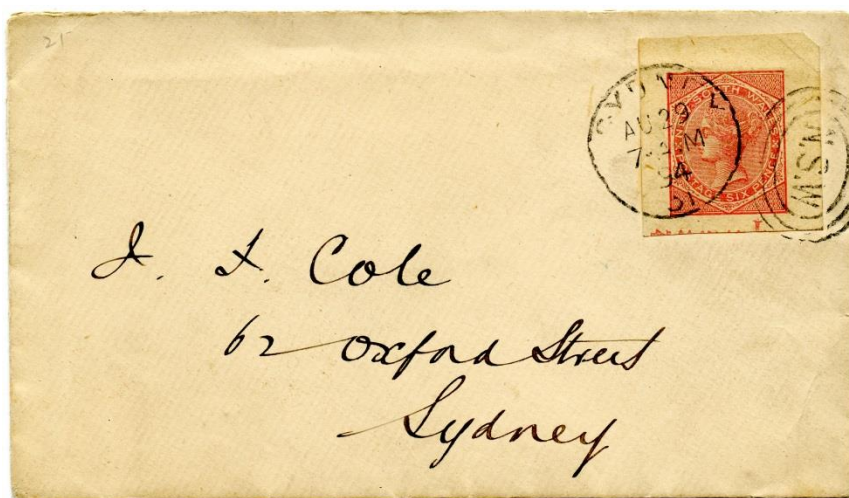 21-
SYDNEY
AU 29
7- M
94
51
N.S.W
NEW SOUTH WALES
POSTAGE SIX PENCE
J. F. Cole
62 Oxford Street
Sydney